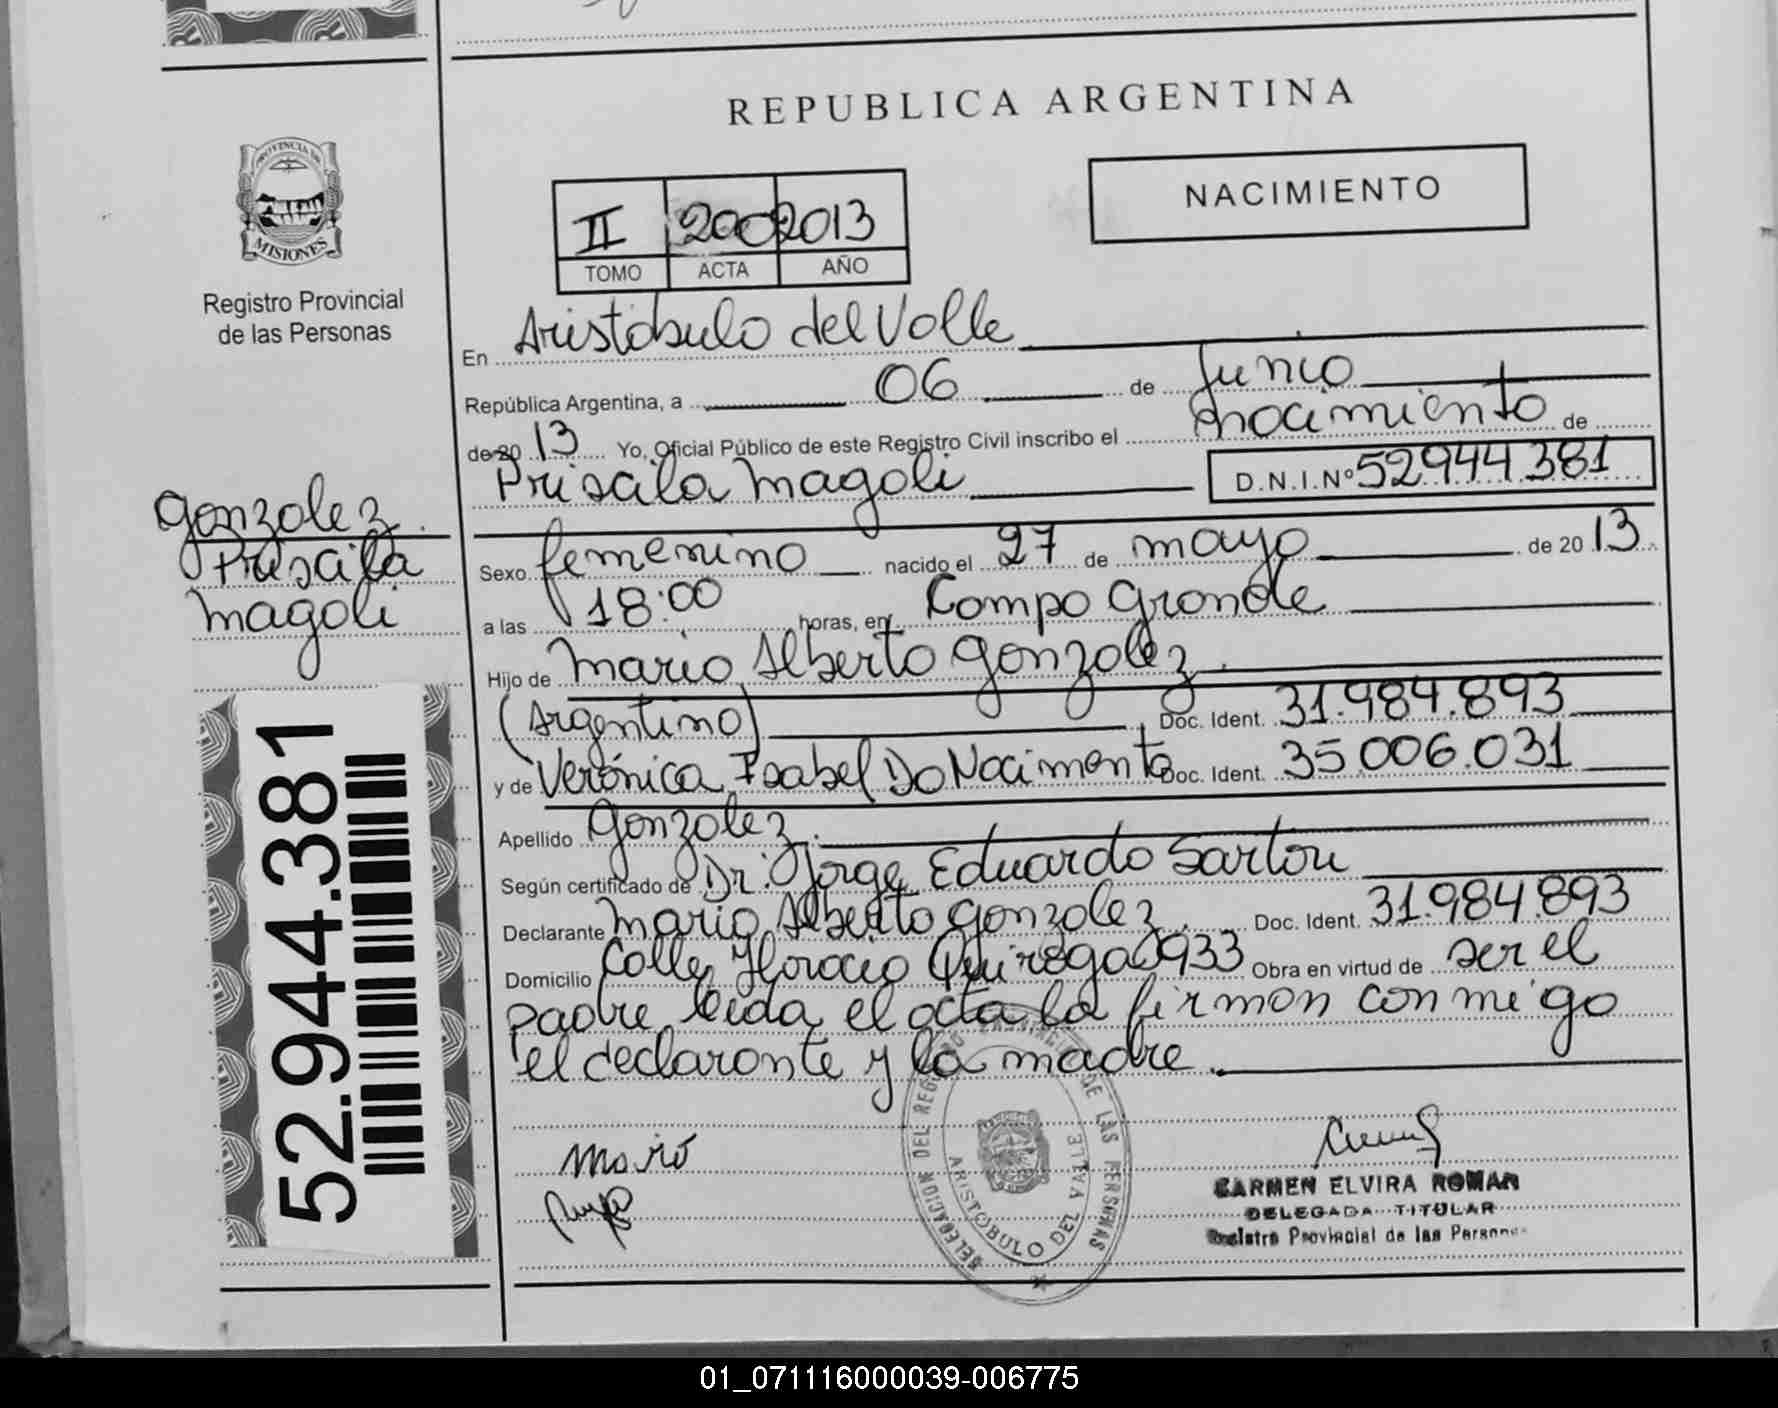 REPUBLICA ARGENTINA
NACIMIENTO
II 200 2013
TOMO ACTA AÑO
PROVINCIA DE
MISIONES
Registro Provincial
de las Personas
En Aristóbulo del Valle
República Argentina, a 06 de Junio
de 20 13 Yo, Oficial Público de este Registro Civil inscribo el nacimiento de
Priscila Magali D.N.I.Nº 52944381
Gonzalez
Priscila
Magali
Sexo femenino nacido el 27 de mayo de 20 13
a las 18:00 horas, en Campo Grande
Hijo de Mario Alberto Gonzalez
(Argentino) Doc. Ident. 31.984.893
y de Verónica Isabel Do Nacimento Doc. Ident. 35.006.031
Apellido Gonzalez
Según certificado de Dr. Jorge Eduardo Sartori
Declarante Mario Alberto Gonzalez Doc. Ident. 31.984.893
Domicilio Calle Horacio Quiroga 0933 Obra en virtud de ser el
padre leida el acta la firman conmigo
el declarante y la madre.
52.944.381
DELEGACION DEL REGISTRO PROVINCIAL DE LAS PERSONAS
ARISTOBULO DEL VALLE
CARMEN ELVIRA ROMAN
DELEGADA TITULAR
Registro Provincial de las Personas
01_071116000039-006775